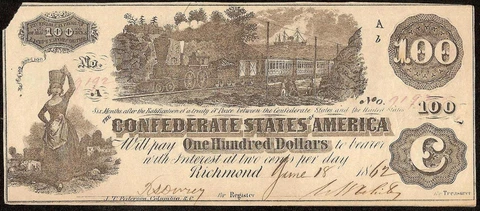 100
A
b
100
No.
A
No.
Six Months after the Ratification of a treaty of Peace between the Confederate States and the United States
100
THE CONFEDERATE STATES OF AMERICA
Will pay One Hundred Dollars to bearer
with Interest at two cents per day
C
Richmond June 18 1862
for Register
for Treasurer
J. T. Paterson, Columbia S.C.